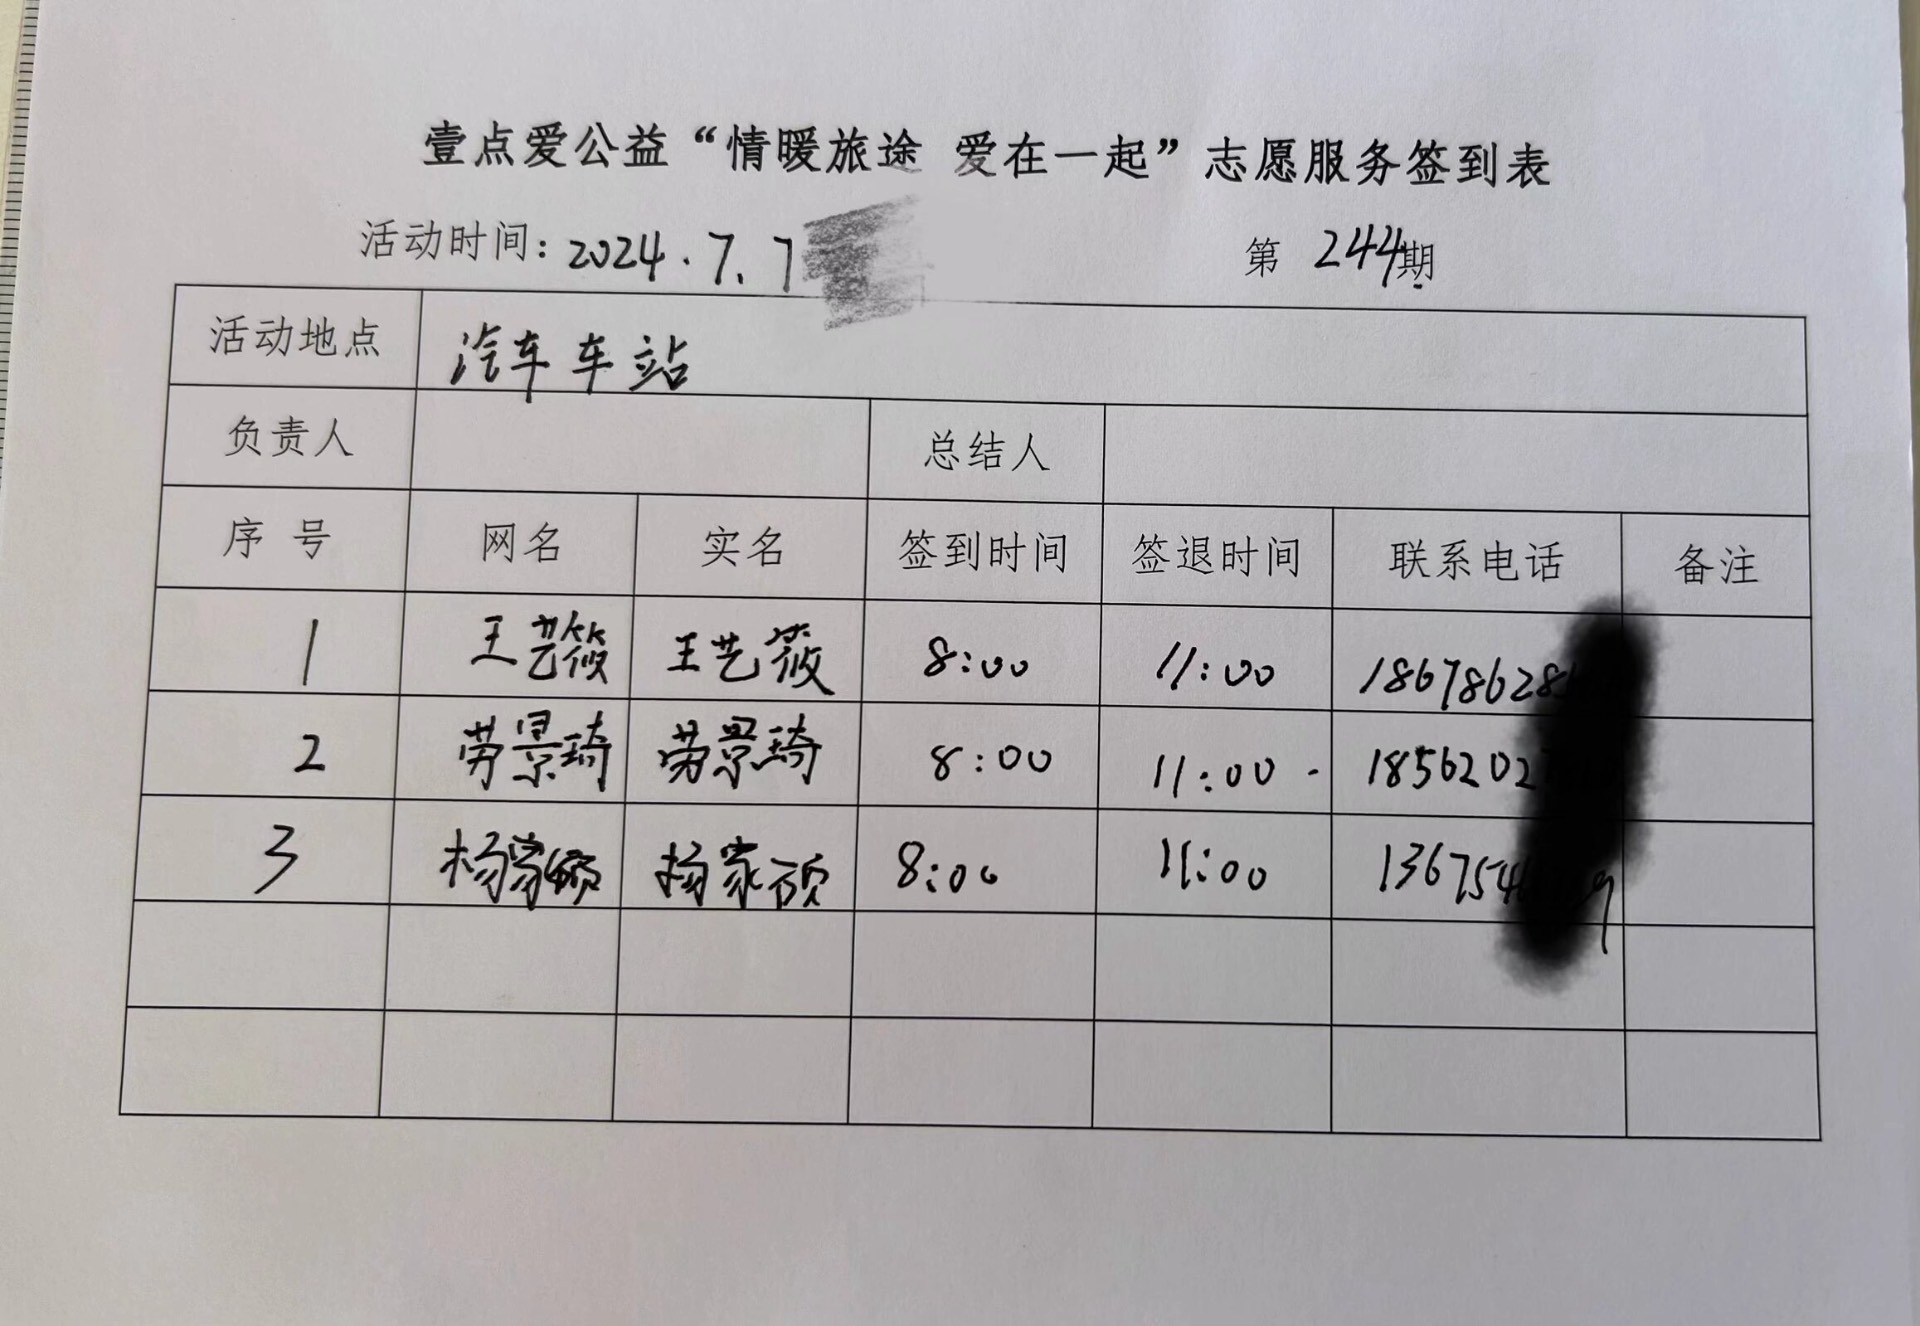 壹点爱公益“情暖旅途 爱在一起”志愿服务签到表
活动时间：2024.7.7 第 244期
活动地点 汽车车站
负责人 总结人
序 号 网名 实名 签到时间 签退时间 联系电话 备注
1 王艺筱 王艺筱 8:00 11:00 18678628
2 劳景琦 劳景琦 8:00 11:00 1856202
3 杨家硕 杨家硕 8:00 11:00 1367546